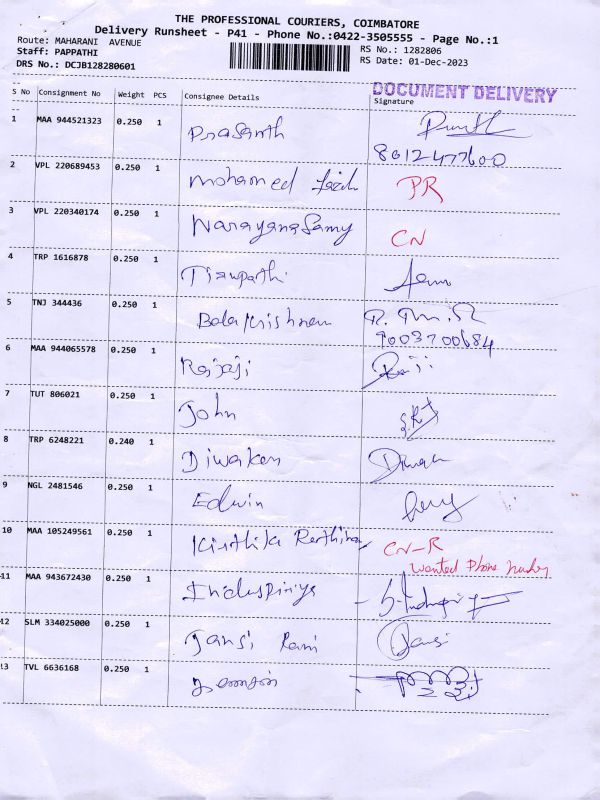 THE PROFESSIONAL COURIERS, COIMBATORE
Delivery Runsheet - P41 - Phone No.:0422-3505555 - Page No.:1
Route: MAHARANI AVENUE
Staff: PAPPATHI
DRS No.: DCJB128280601
RS No.: 1282806
RS Date: 01-Dec-2023
DOCUMENT DELIVERY
S No Consignment No Weight PCS Consignee Details Signature
1 MAA 944521323 0.250 1 Prasanth
8012477600
2 VPL 220689453 0.250 1 Mohamed PR
3 VPL 220340174 0.250 1 Narayanasamy CN
4 TRP 1616878 0.250 1
5 TNJ 344436 0.250 1 Balakrishnan
9003700684
6 MAA 944065578 0.250 1 Rajaji
7 TUT 806021 0.250 1 John
8 TRP 6248221 0.240 1 Diwaker
9 NGL 2481546 0.250 1 Edwin
10 MAA 105249561 0.250 1 Kirthika CN-R
Wanted Phone number
11 MAA 943672430 0.250 1 Indupriya
12 SLM 334025000 0.250 1 Jansi Rani Jansi
13 TVL 6636168 0.250 1